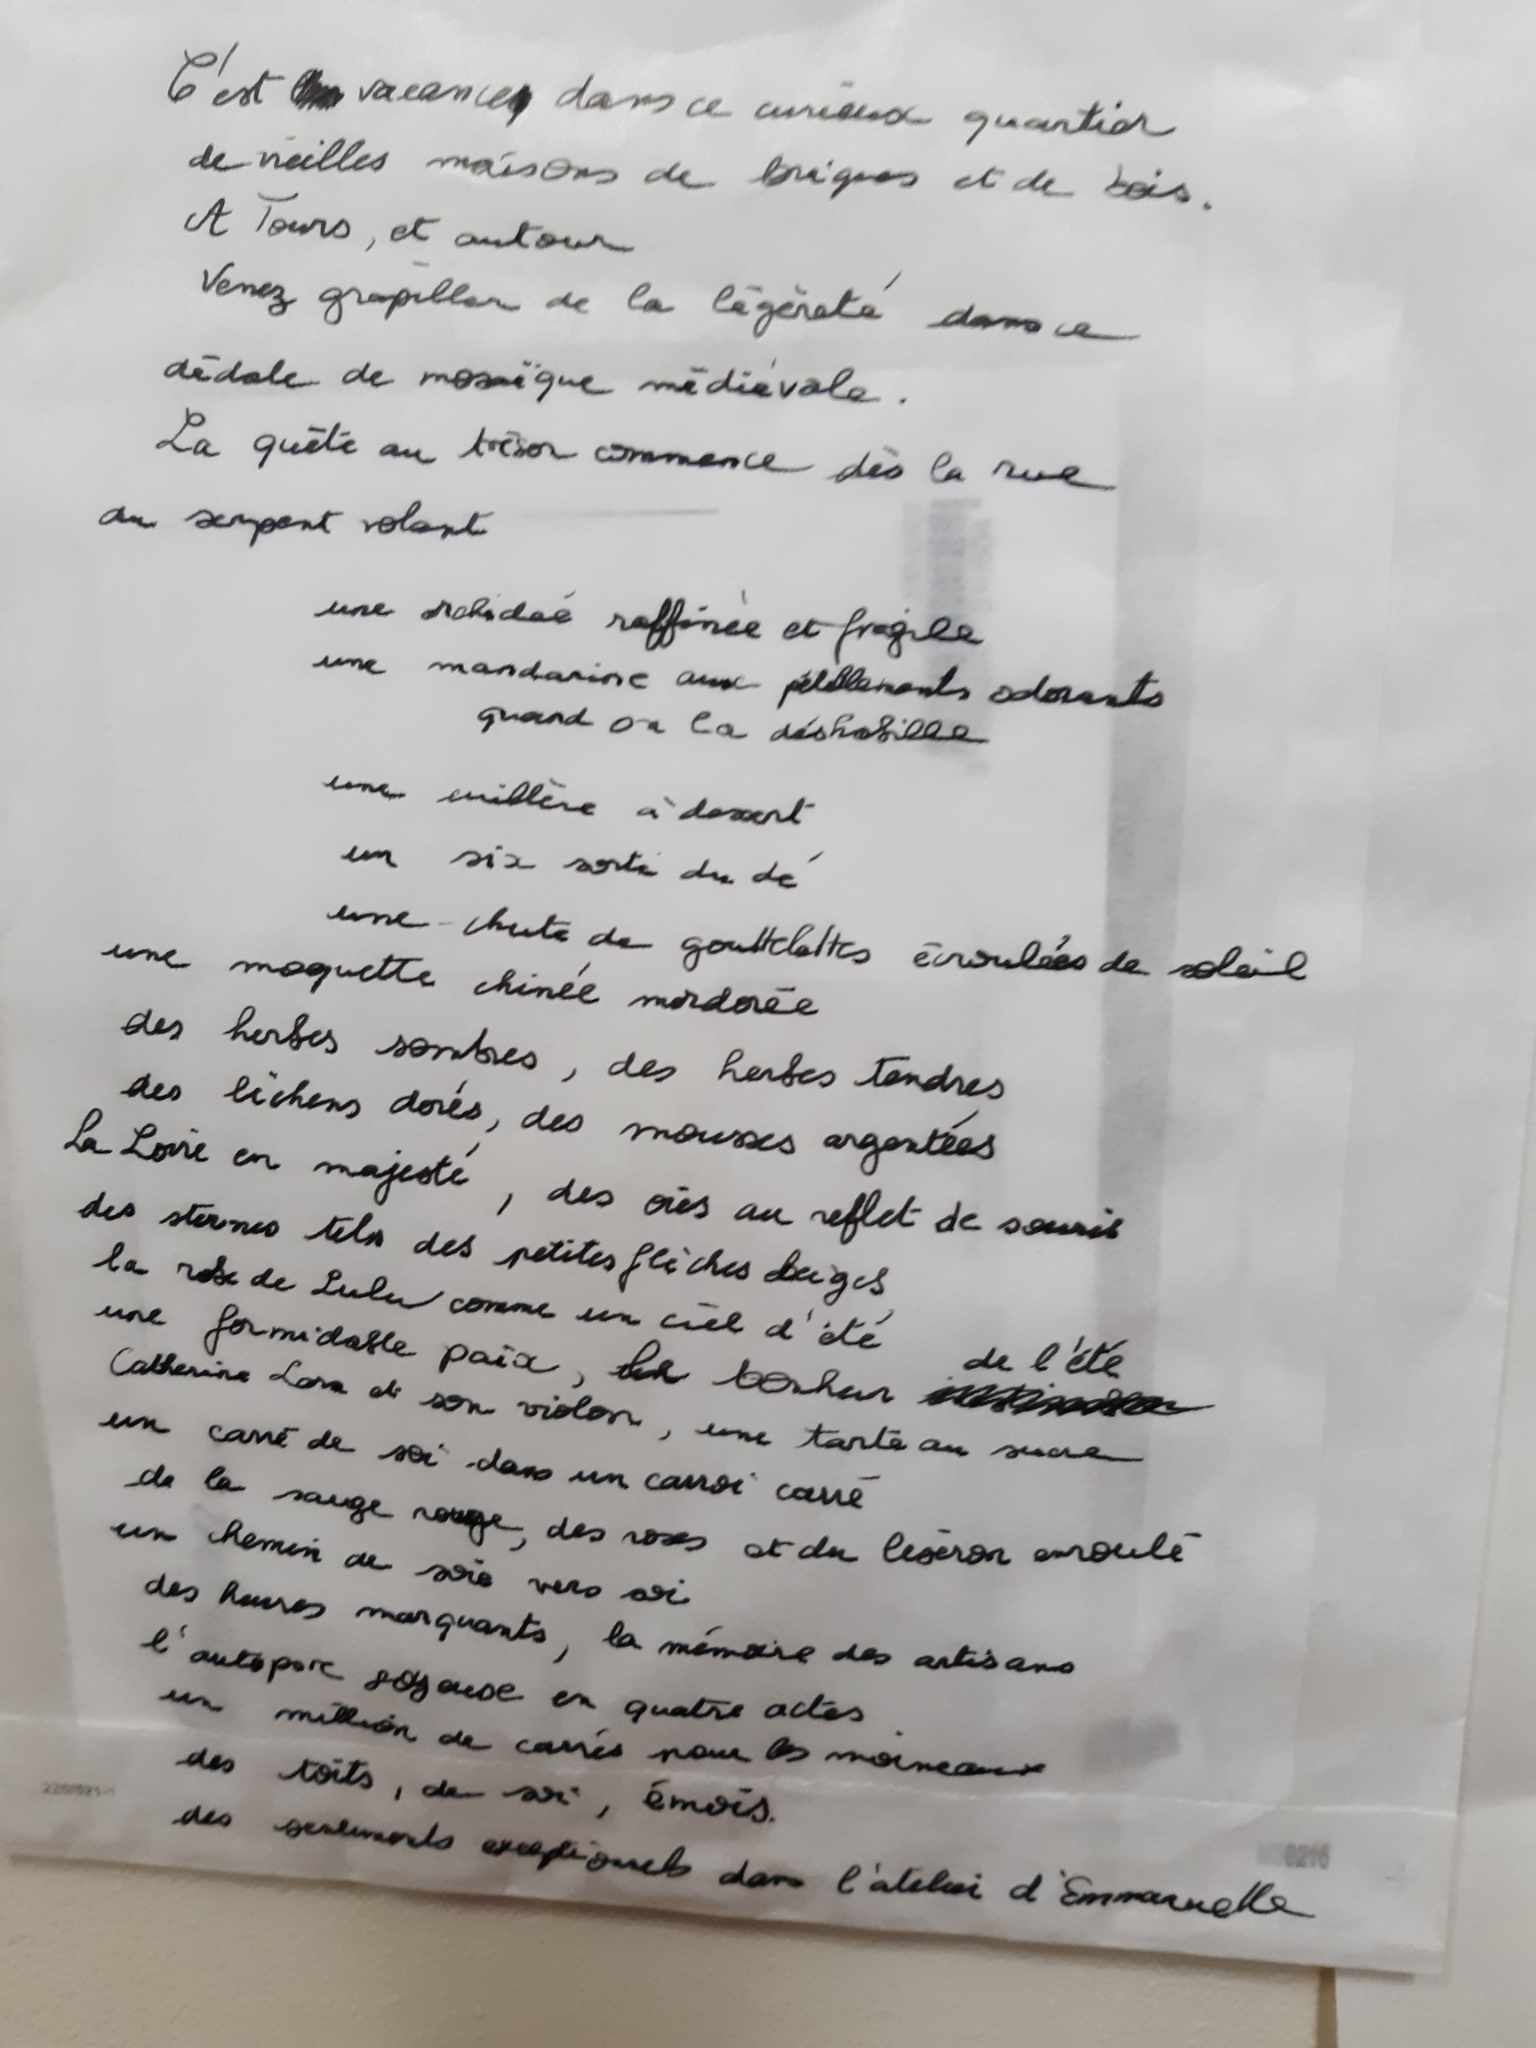 C'est vacance dans ce curieux quartier
de vieilles maisons de briques et de bois.
A Tours, et autour
Venez grapiller de la légèreté dans ce
dédale de mosaïque médiévale.
La quête au trésor commence dès la rue
du serpent volant
une orchidée raffinée et fragile
une mandarine aux odorants
quand on la déshabille
une cuillère à dessert
un six sorti du dé
une chute de gouttelettes écroulées de soleil
une moquette chinée mordorée
des herbes sombres, des herbes tendres
des lichens dorés, des mousses argentées
La Loire en majesté, des oies au reflet de souris
des sternes tels des petites flèches beiges
la rose de Lulu comme un ciel d'été
une formidable paix, bonheur de l'été
Catherine Lara et son violon, une tarte au sucre
un carré de soi dans un carroi carré
de la sauge rouge, des roses et du liseron enroulé
un chemin de soie vers soi
des heures marquants, la mémoire des artisans
en quatre actes
un million de carrés pour les moineaux
des toits, de soi, émois.
des sentiments exceptionnels dans l'atelier d'Emmanuelle
0216